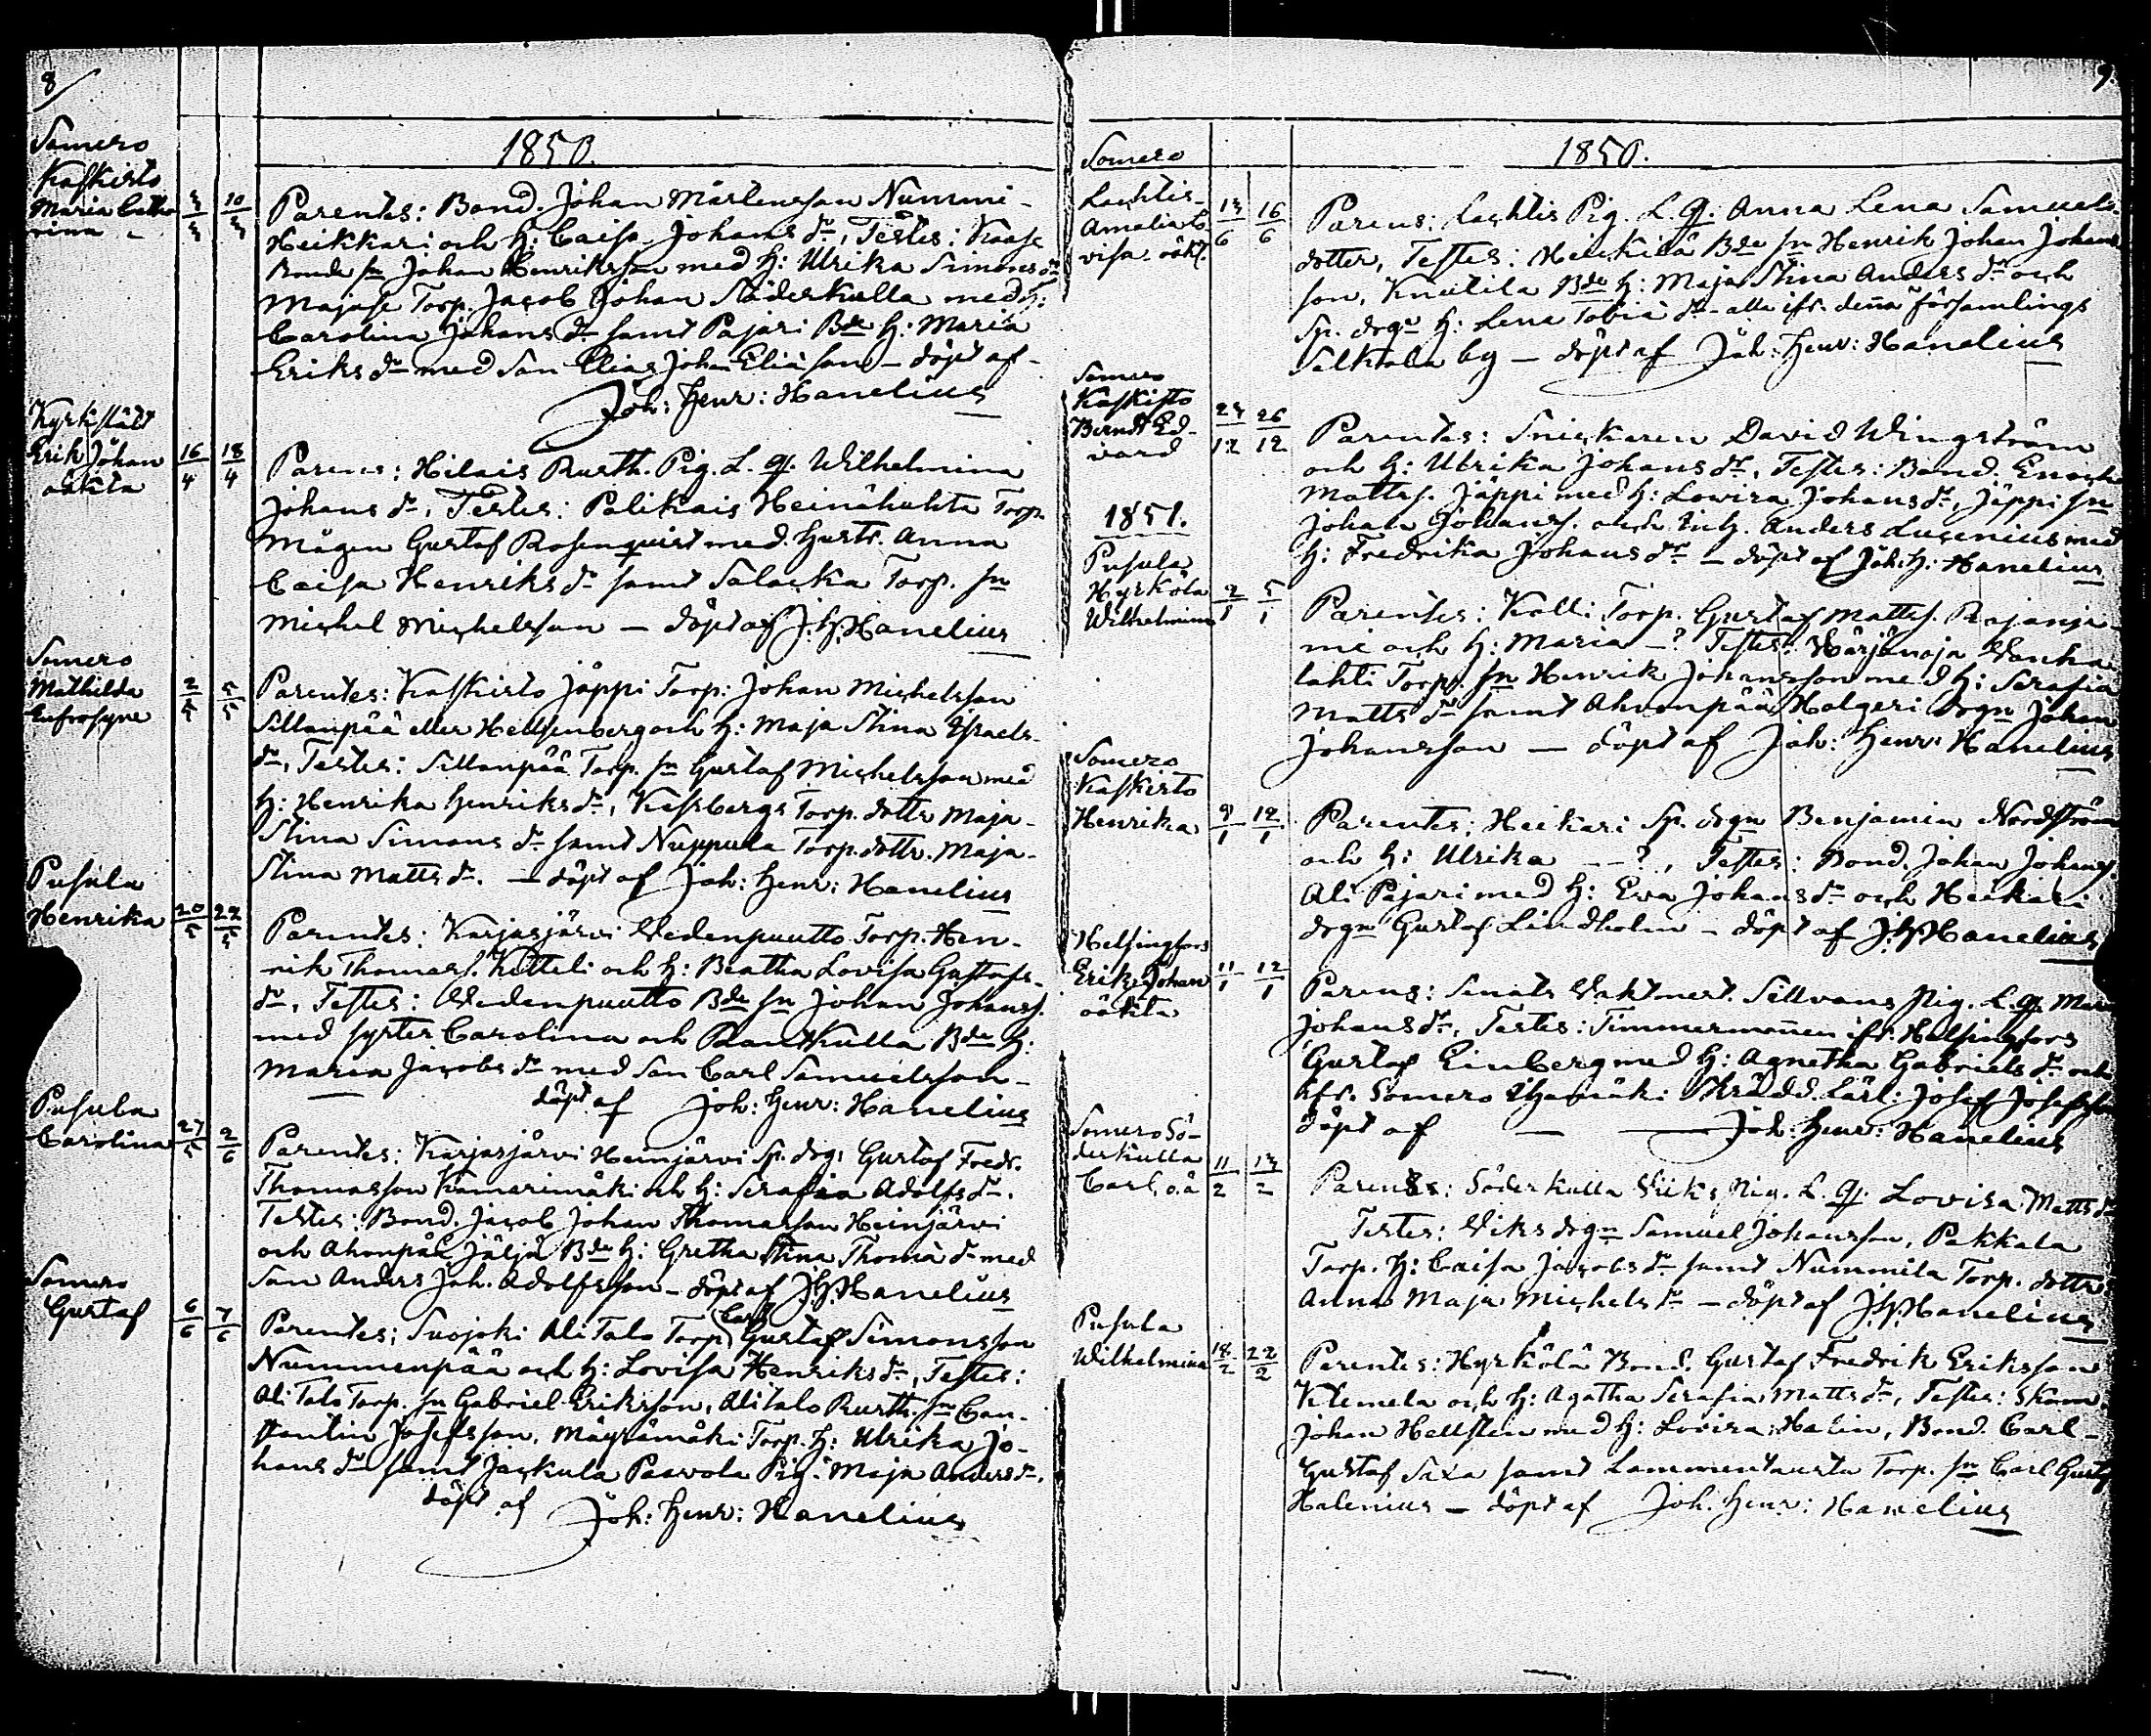 8
1850.
Somero
Kaskisto
Maria Catha
rina
10
Parentes: Bond. Johan Mårtensson Nummi-
Heikkari och H: Caisa Johans dr, Testes: Kaase
Bonde sn Johan Henriksson med H: Ulrika Simons dr
Majase Torp. Jacob Johan Söderkulla med H:
Carolina Johans dr samt Pajari Bde H: Maria
Eriks dr med Son Elias Johan Eliæ son – döpt af
Joh: Henr: Hanelius
Kyrkslätt
Erik Johan
oäkta
16/4 18/4
Parens: Hilais Rusth. Pig. L. q. Wilhelmina
Johans dr, Testes: Palikais Heinähuhta Torp.
Mågen Gustaf Rosenquist med Hustr. Anna
Caisa Henriks dr samt Salacka Torp. sn
Michel Michelsson – döpt af J.H. Hanelius
Somero
Mathilda
Eufrosyne
2/5 5/5
Parentes: Kaskisto Jäppi Torp: Johan Michelsson
Sillanpää eller Hellsenberg och H: Maja Stina Israels-
dr, Testes: Sillanpää Torp. sn Gustaf Michelsson med
H: Henrika Henriks dr, Kassbergs Torp. dottr Maja-
Stina Simons dr samt Nuppula Torp. dottr. Maja-
Stina Matts dr. – döpt af Joh: Henr: Hanelius
Pusula
Henrika
20/5 22/5
Parentes: Karjasjärvi Wedenpuutto Torp. Hen-
rik Thomass. Kitteli och H: Beatha Lovisa Gustafs-
dr, Testes: Wedenpuutto Bde sn Johan Johanss.
med syster Carolina och Rantkulla Bde H:
Maria Jacobs dr med Son Carl Samuelsson –
döpt af Joh: Henr: Hanelius
Pusula
Carolina
27/5 2/6
Parentes: Karjasjärvi Heinjärvi Sp. drg: Gustaf Fredr.
Thomasson Kamarimäki och H: Serafia Adolfs dr.
Testes: Bond. Jacob Johan Thomasson Heinjärvi
och Ahonpää Jäljä Bde H: Gretha Stina Thomæ dr med
Son Anders Joh. Adolfsson – döpt af J.H. Hanelius
Somero
Gustaf
6/6 7/6
Parentes: Suojoki Ali Talo Torp. Carl Gustaf Simonsson
Nummenpää och H: Lovisa Henriks dr, Testes:
Ali Talo Torp. sn Gabriel Eriksson, Ali talo Rusth. sn Con-
stantin Josefsson, Mäyrämäki Torp. H: Ulrika Jo-
hans dr samt Jackula Paavola Pig. Maja Anders dr.
döpt af Joh: Henr: Hanelius
9.
1850.
Somero
Lachtis
Amalia Lo-
visa oäkt.
13/6 16/6
Parens: Lachtis Pig. L. q. Anna Lena Samuels-
dotter, Testes: Heickilä Bde sn Henrik Johan Johans
son, Knutila Bde H: Maja Stina Anders dr och
Sp. drgn H: Lena Tobiæ dr – alla ifr. denna församlings
Salkola by – döpt af Joh: Henr: Hanelius
Somero
Kaskisto
Berndt Ed-
vard
24/12 26/12
Parentes: Snickaren David Wingström
och H: Ulrika Johans dr, Testes: Bond. Enoch
Mattss. Jäppi med H: Lovisa Johans dr, Jäppi sn
Johan Johanss. och Inh. Anders Lucenius med
H: Fredrika Johans dr – döpt af Joh. H: Hanelius
1851.
Pusula
Hyrkölä
Wilhelmina
2/1 5/1
Parentes: Kalli Torp. Gustaf Mattss. Rajanie-
mi och H: Maria – ? Testes: Härjänoja Wanha
lahti Torp. sn Henrik Johansson med H: Serafia
Matts dr samt Ahonpää Holgeri drgn Johan
Johansson – döpt af Joh: Henr: Hanelius
Somero
Kaskisto
Henrika
9/1 12/1
Parentes: Heikari Sp. drgn Benjamin Nordström
och H: Ulrika – – ?, Testes: Bond. Johan Johanss.
Ali Pajari med H: Eva Johans dr och Heikari
drgn Gustaf Lindholm – döpt af J.H. Hanelius
Helsingfors
Erik Johan
oäkta
11/1 12/1
Parens: Senats Vaktmest. Sillvans Pig. L. q. Maria
Johans dr, Testes: Timmermannen ifr. Helsingfors
Gustaf Einberg med H: Agnetha Gabriels dr och
ifr. Somero Skrädd. Lärl: Josef Josefsson
döpt af – – Joh: Henr: Hanelius
Somero Sö-
derkulla
Carl, o.ä
11/2 13/2
Parens: Söderkulla Viks Pig. L. q. Lovisa Matts dr
Testes: Viks drgn Samuel Johansson, Pakkala
Torp. H: Caisa Jacobs dr samt Nummila Torp. dottr
Anna Maja Michels dr – döpt af J.H. Hanelius
Pusula
Wilhelmina
18/2 22/2
Parentes: Hyrkölä Bond. Gustaf Fredrik Eriksson
Klemela och H: Agatha Serafia Matts dr, Testes: Skom.
Johan Hellsten med H: Lovisa Halin, Bond. Carl
Gustaf Saxa samt Lammentausta Torp. sn Carl Gustaf
Halenius – döpt af Joh. Henr: Hanelius